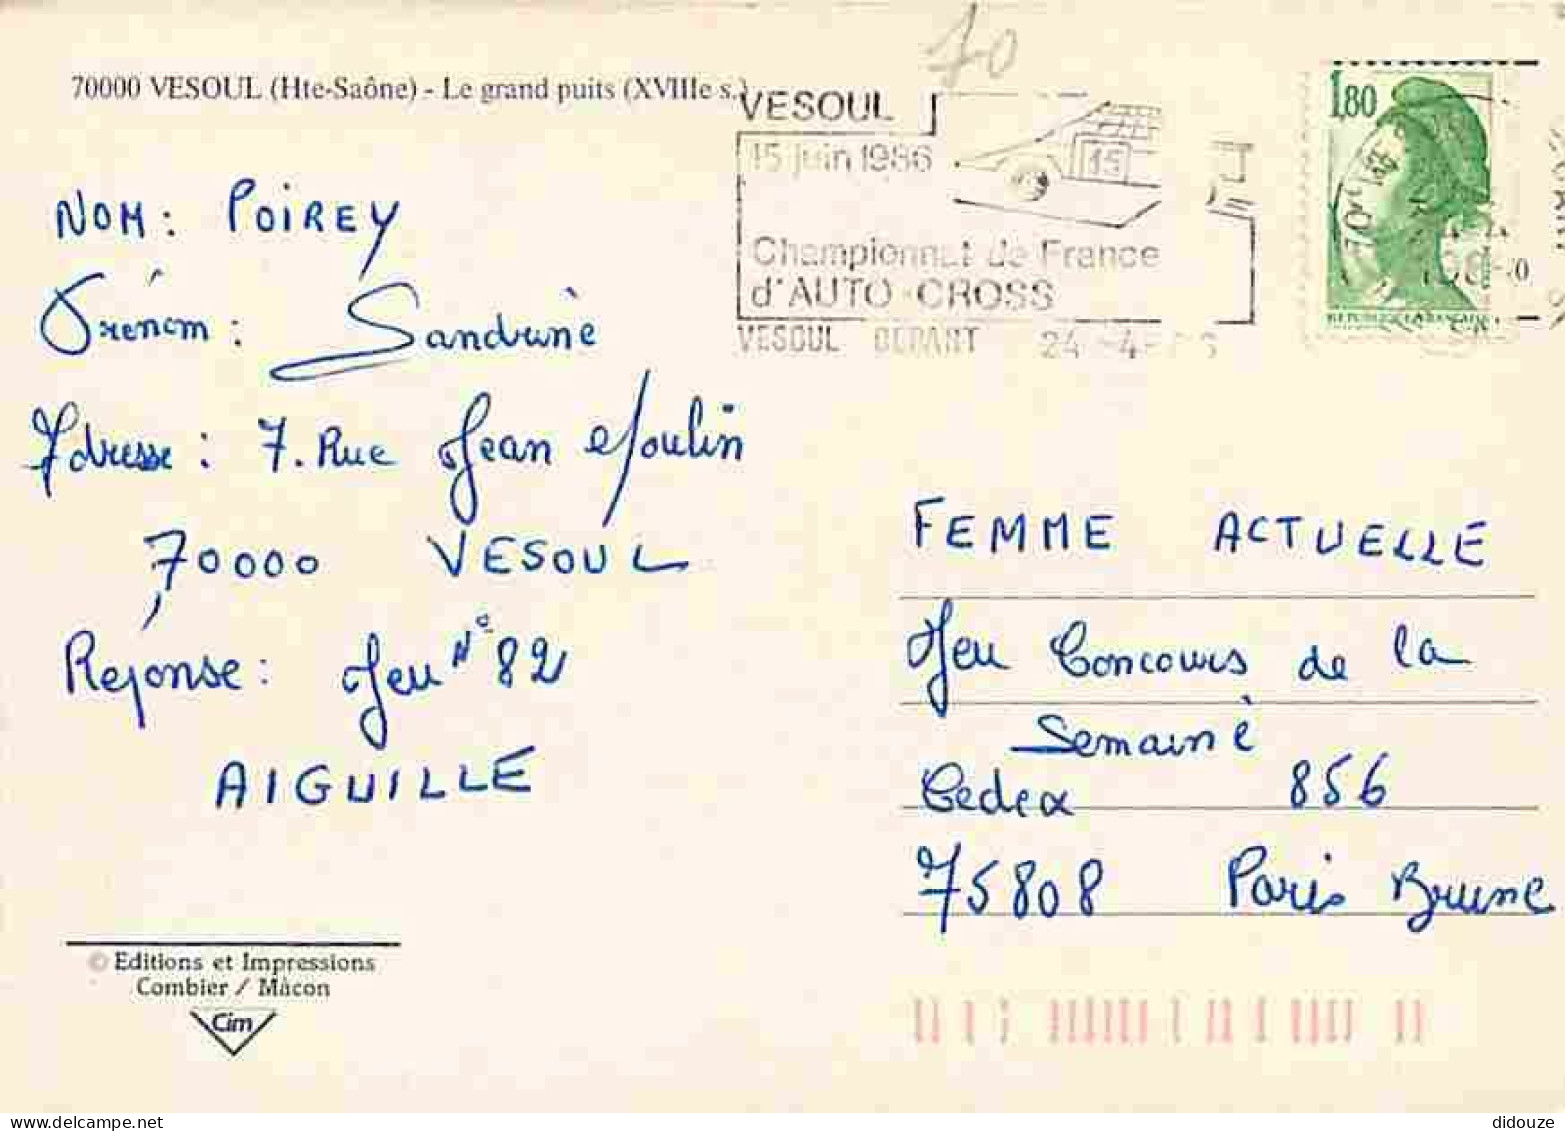 70
70000 VESOUL (Hte-Saône) - Le grand puits (XVIIIe s.)
VESOUL
15 juin 1986
15
Championnat de France
d'AUTO-CROSS
VESOUL DEPART 24-4-
1,80
REPUBLIQUE FRANÇAISE
NOM: POIREY
Prénom: Sandrine
Adresse: 7. Rue Jean Moulin
70000 VESOUL
Réponse: Jeu N° 82
AIGUILLE
FEMME ACTUELLE
Jeu Concours de la
Semaine
Cedex 856
75808 Paris Brune
© Editions et Impressions
Combier / Mâcon
Cim
didouze